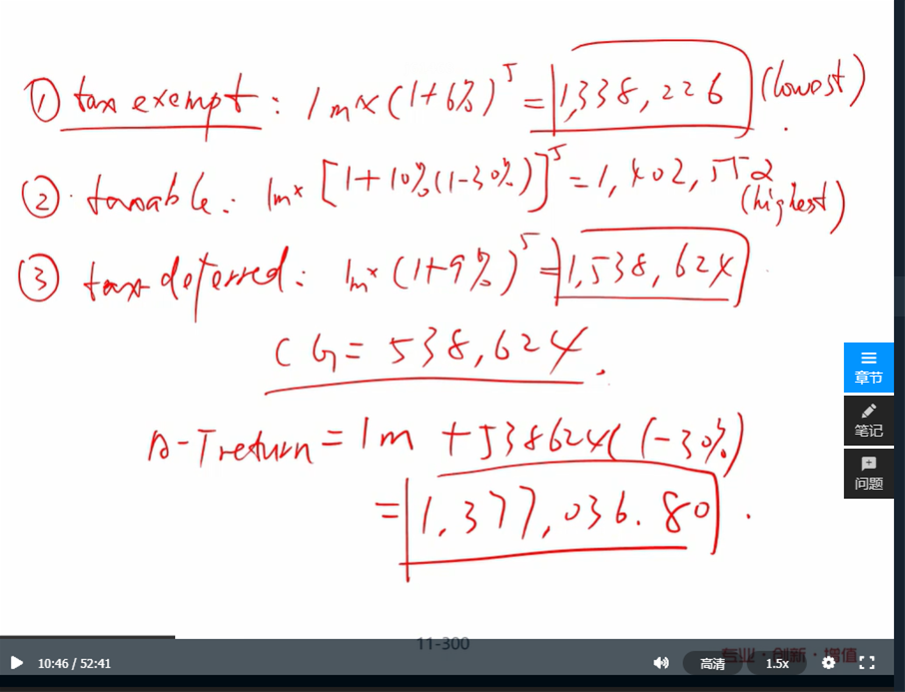 ① tax exempt: 1m×(1+6%)^5=1,338,226 (lowest)
②. taxable: 1m×[1+10%(1-30%)]^5=1,402,552 (highest)
③ tax deferred: 1m×(1+9%)^5=1,538,624
CG=538,624.
A-T return=1m+538624(1-30%)
=1,377,036.80.
章节
笔记
问题
11-300
专业·创新·增值
10:46 / 52:41
高清
1.5x